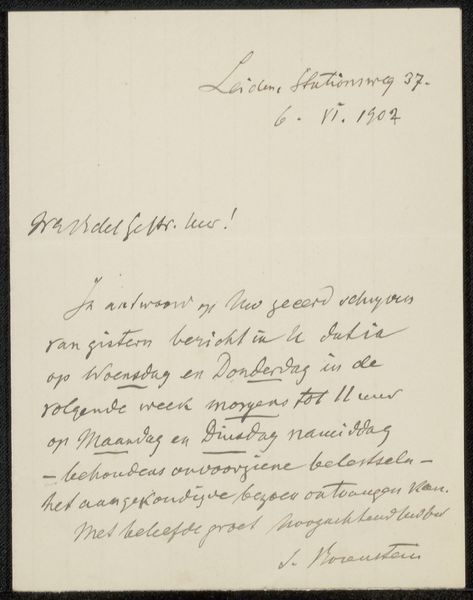 Leiden, Stationsweg 37.
6. VI. 1902
WelEdelGestr. Heer!
In antwoord op Uw geëerd schrijven
van gistern bericht ik U dat ik
op Woensdag en Donderdag in de
volgende week morgens tot 11 uur
op Maandag en Dinsdag namiddag
– behoudens onvoorziene beletseln –
het aangekondigde bezoek ontvangen kan.
Met beleefde groet hoogachtend